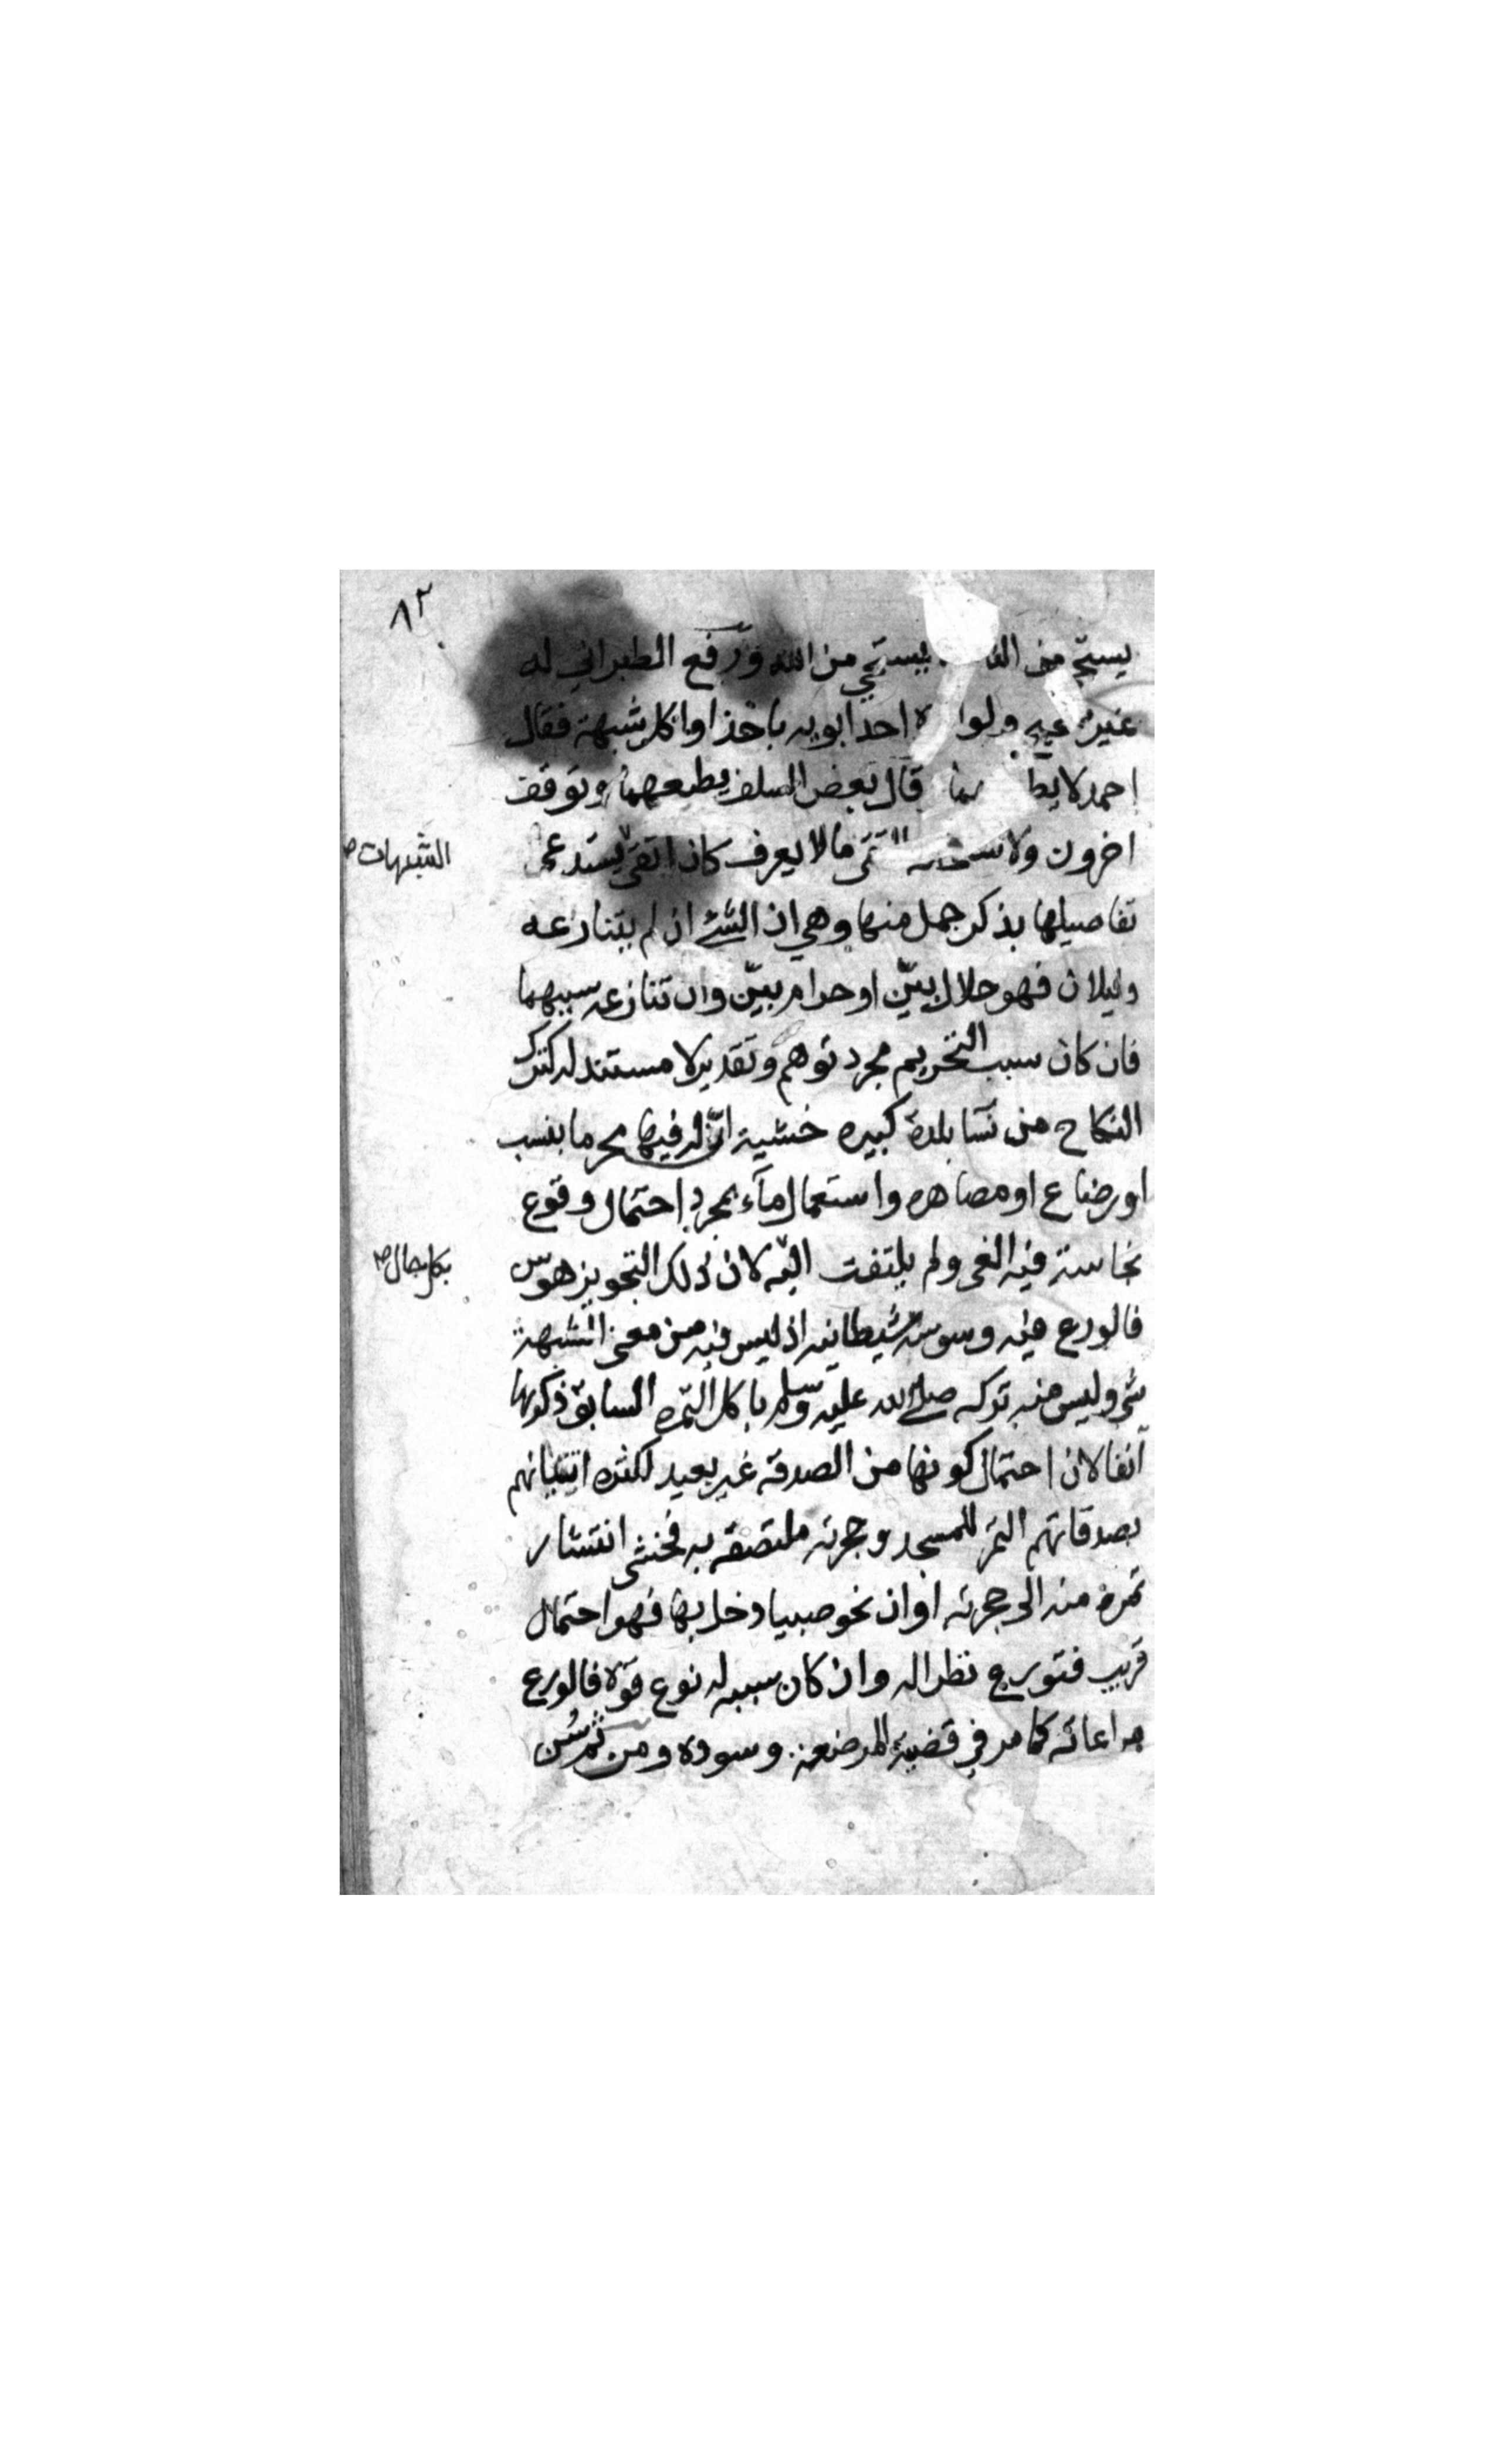 ٨٢
يستحي من الله ورفع الطبراني له
غير صحيح ولو احد ابويه باخذ او اكل شبهة فقال
احمد لا قال بعض السلف يطيعهما وتوقف
اخرون ما لا يعرف كان اتقى يستدعي
الشبهات صح
تفاصيلها بذكر جمل منها وهي ان الشئ ان لم يتنازعه
دليلان فهو حلال بيّن او حرام بيّن وان تنازعه سببهما
فان كان سبب التحريم مجرد توهم وتقدير لا مستند له كترك
النكاح من نسآ بلدة كبيره خشية انّ له فيها محرما بنسب
او رضاع او مصاهره واستعمال مآء بمجرد احتمال وقوع
نجاسة فيه الغي ولم يلتفت اليه لان ذلك التجويز هوس
بكل حال صح
فالورع فيه وسوسة شيطانيه اذ ليس فيه من معنى الشبهة
شي وليس منه تركه صلى الله عليه وسلم باكل التمره السابق ذكرها
آنفا لان احتمال كونها من الصدقه غير بعيد لكثره اتيانهم
بصدقاتهم التمر للمسجد وحجرته ملتصقه به فخشي انتشار
تمره منه الى حجرته او ان نحو صبيا دخل بها فهو احتمال
قريب فتورع نظرا له وان كان سببه له نوع قوّة فالورع
مراعاته كما مر في قضية المرضعه وسوده ومن ثم سُن